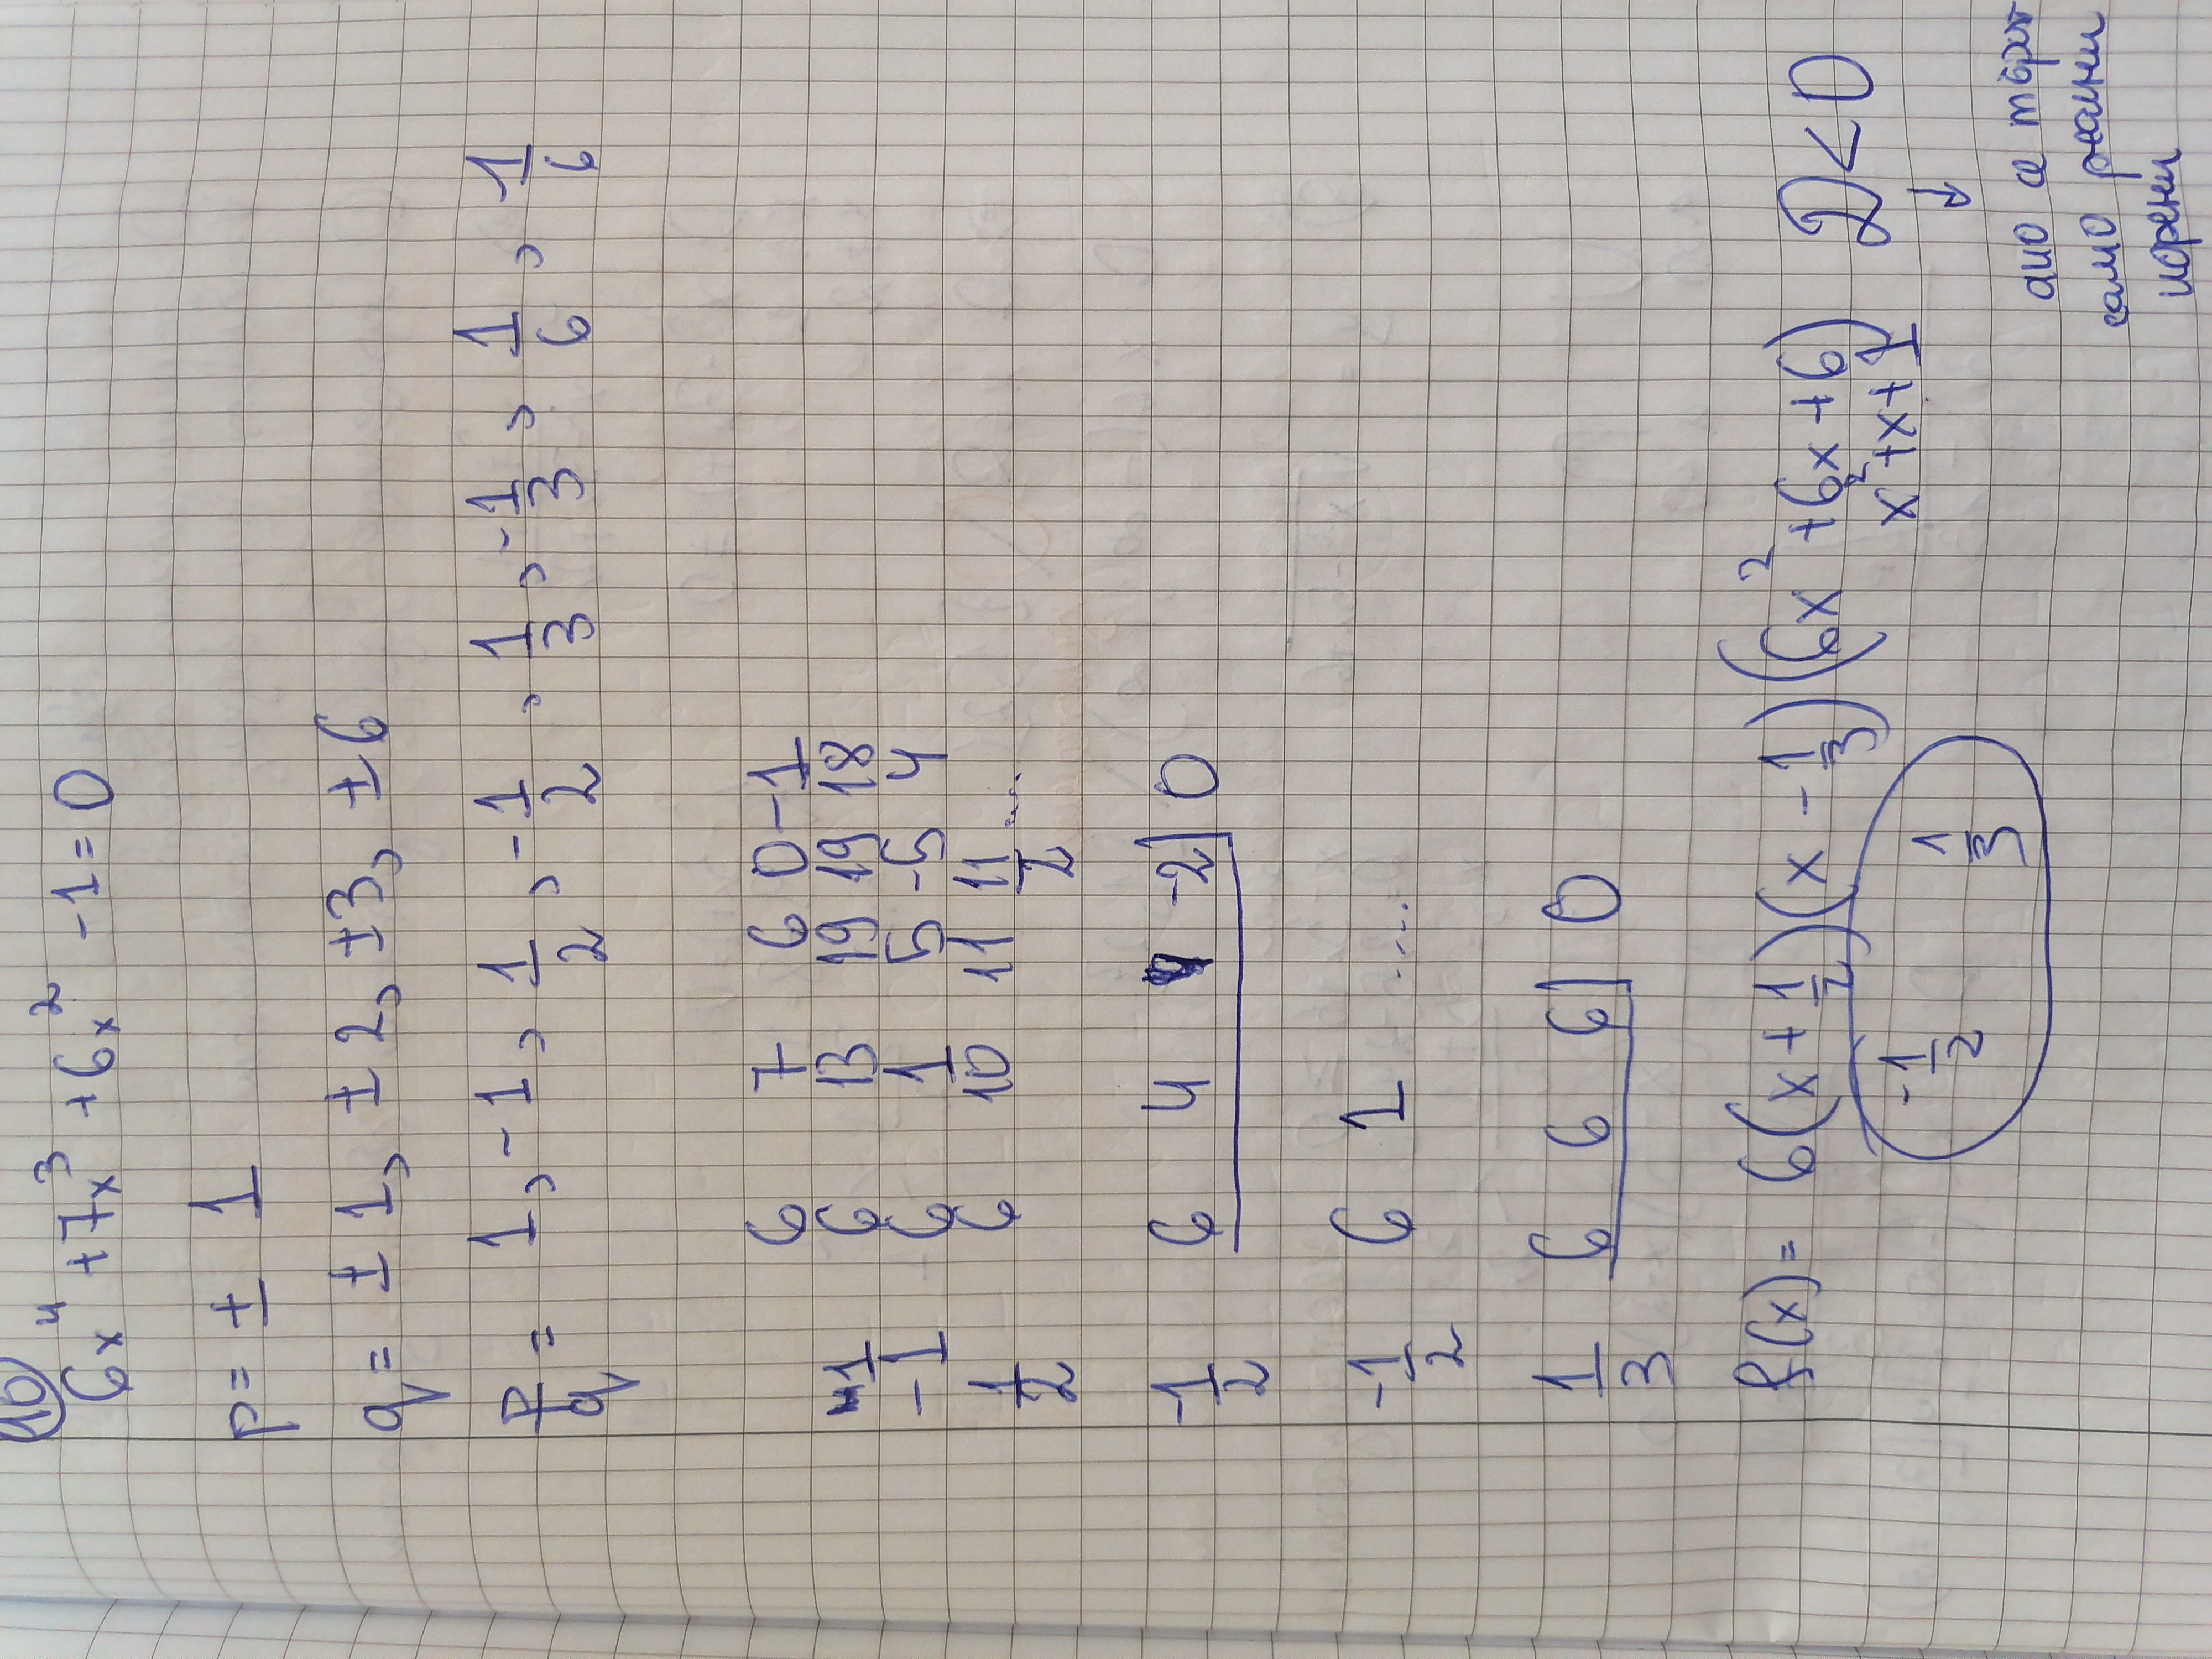 10
6x⁴ +7x³ +6x² -1=0
p= ± 1
q= ± 1, ± 2, ±3, ±6
p/q = 1, -1, 1/2, -1/2, 1/3, -1/3, 1/6, -1/6
6 7 6 0 -1
1 6 13 19 19 18
-1 6 1 5 -5 4
1/2 6 10 11 11/2 ....
-1/2 6 4 4 -2] 0
-1/2 6 1 ....
1/3 6 6 6] 0
f(x)= 6(x + 1/2)(x - 1/3)(6x² +6x +6) D<0
x²+x+1
-1/2 1/3
↓
ако се търсят
само реални
корени